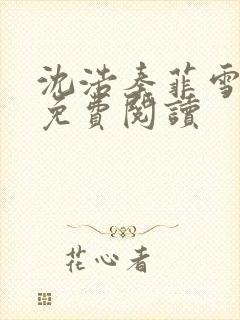 沈浩秦菲雪
免費閱讀
花心者